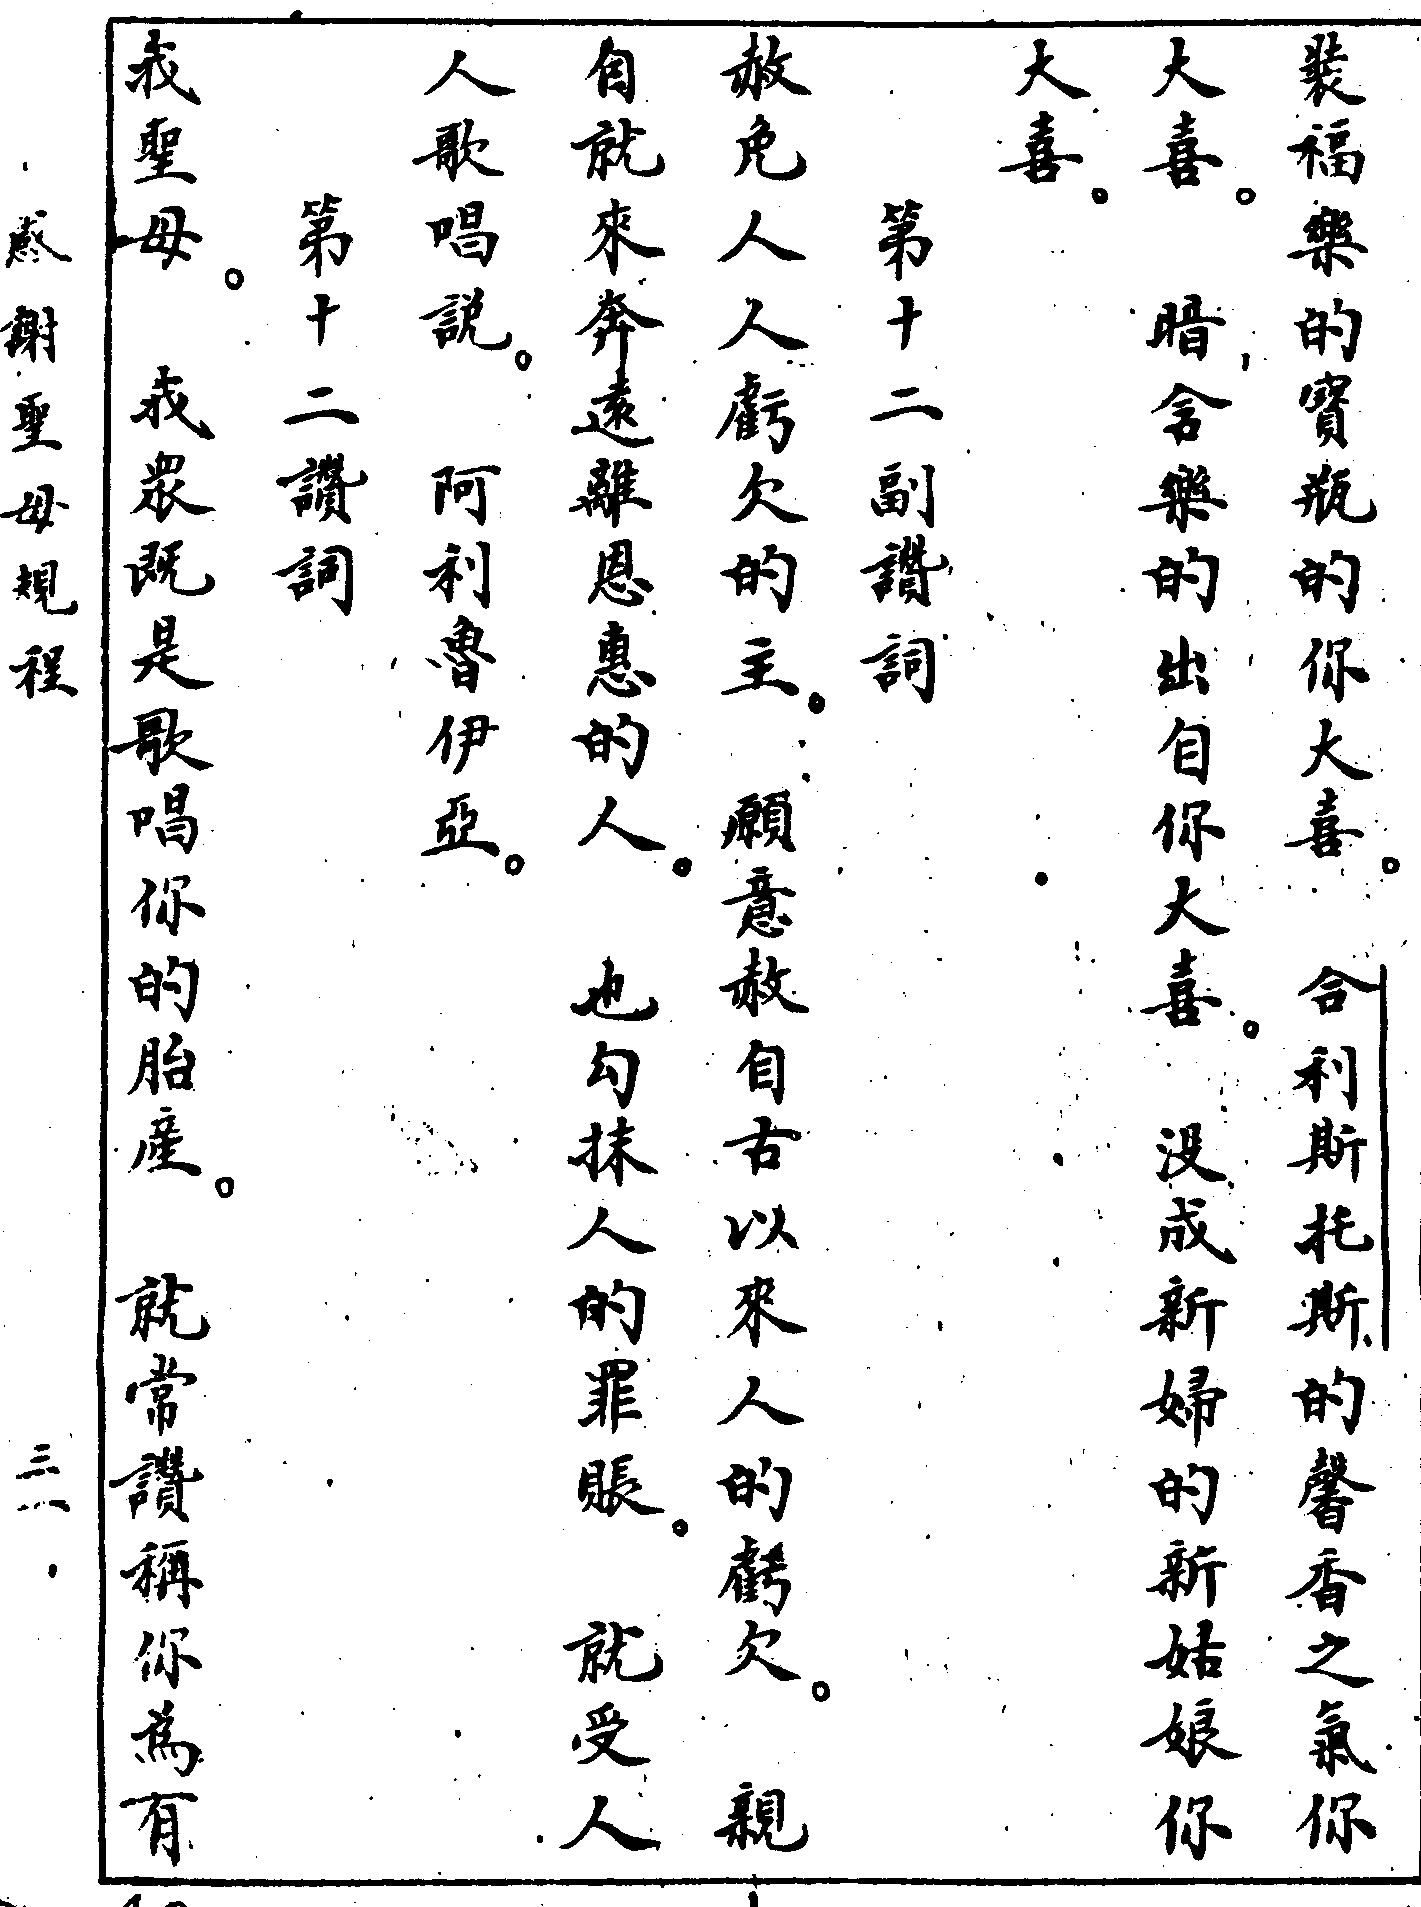 裝福樂的寶瓶的你大喜。 合利斯托斯的馨香之氣你
大喜。 暗含樂的出自你大喜。 没成新婦的新姑娘你
大喜。
第十二副讚詞
赦免人人虧欠的主。 願意赦自古以來人的虧欠。 親
自就來奔遠離恩惠的人。 也勾抹人的罪賬。 就受人
人歌唱説。 阿利魯伊亞。
第十二讚詞
我聖母。 我衆既是歌唱你的胎産。 就常讚稱你為有
感謝聖母規程
三一